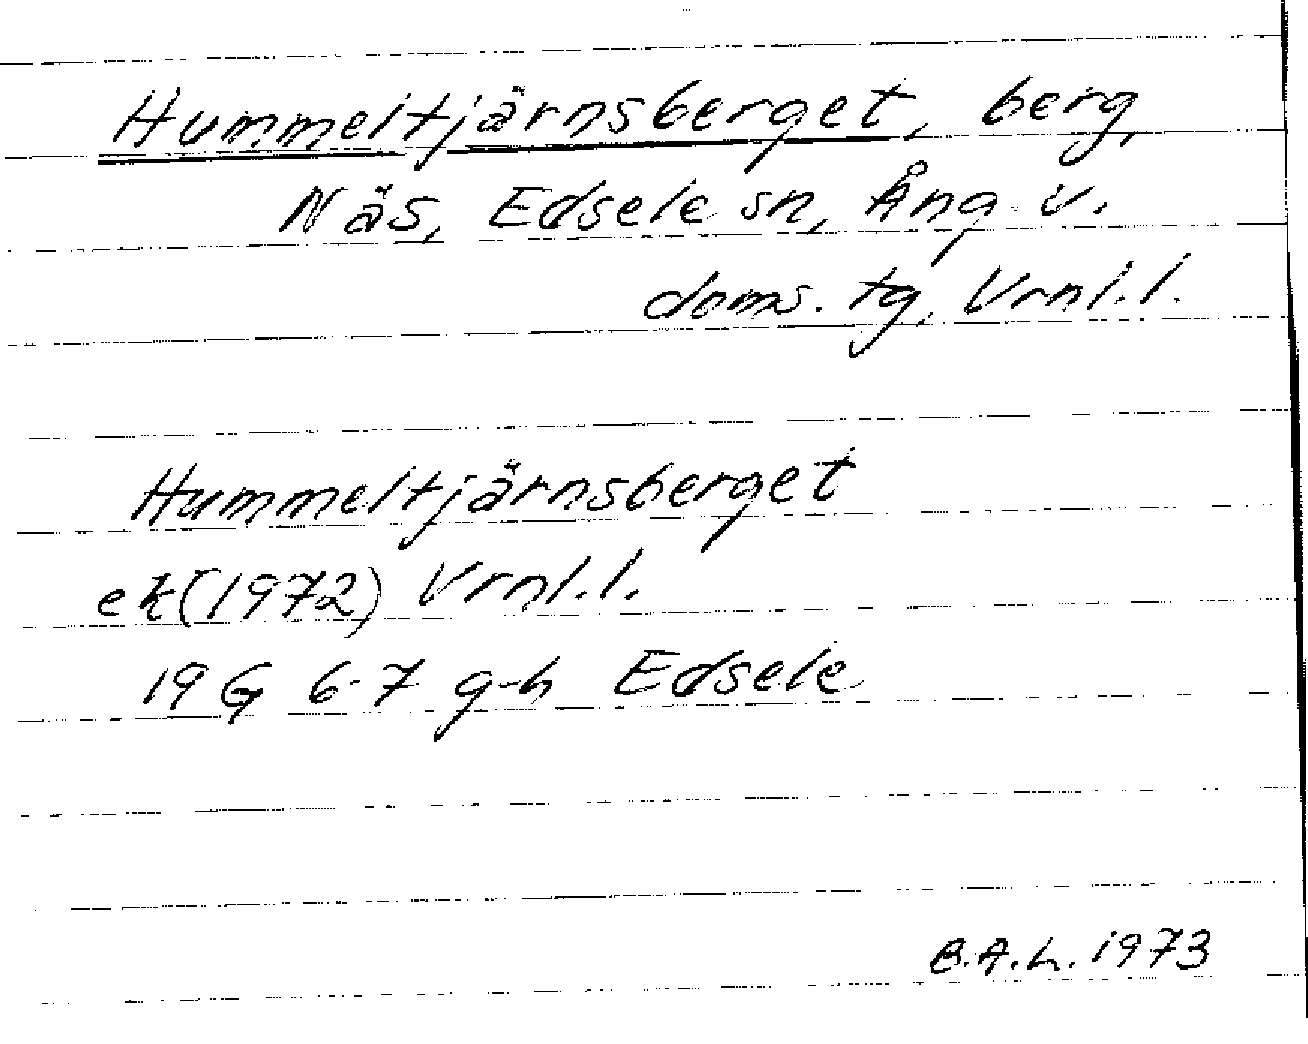 Hummeltjärnsberget, berg,
Näs, Edsele sn, Ång. v.
doms. tg, Vrnl.l.
Hummeltjärnsberget
ek(1972) Vrnl.l.
19 G 6-7 g-h Edsele
B.A.L. 1973